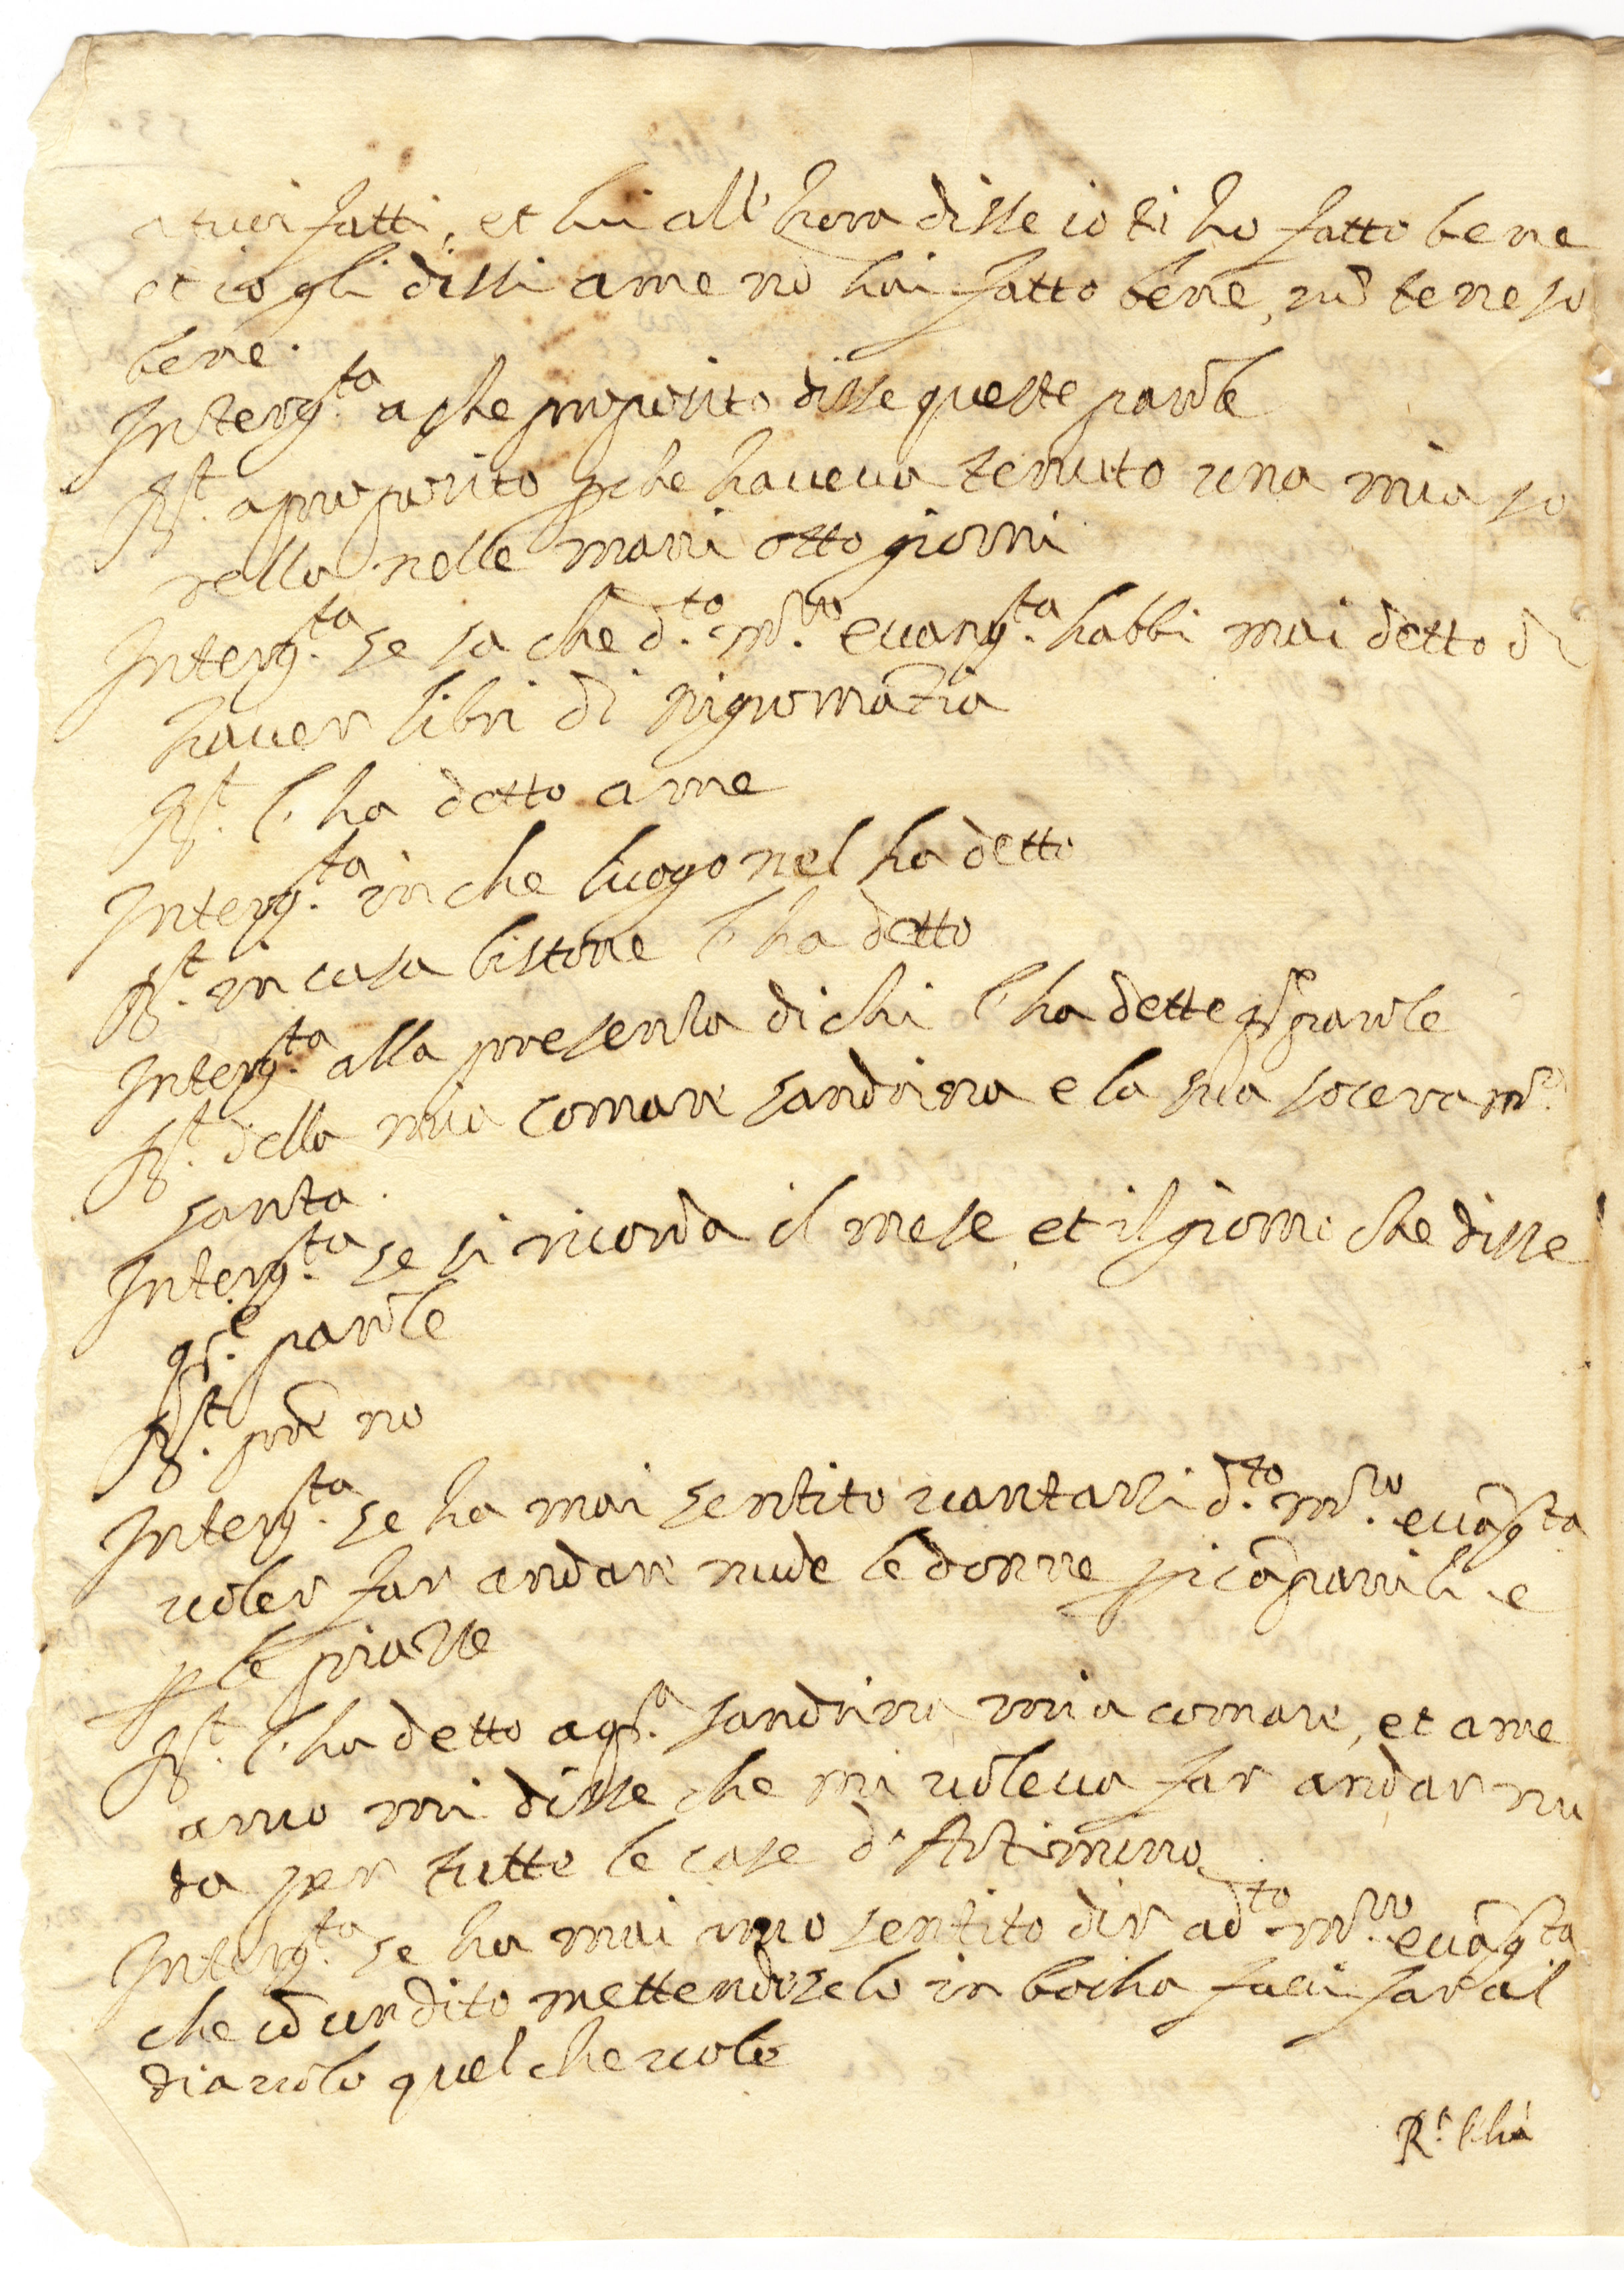 a tuoi fatti, et lui all'hora disse io ti ho fatto bene
et io gli dissi a me nō hai fatto bene, nō te ne so
bene.
Interg.ta a che proposito disse queste parole
R.st a proposito p che haveva tenuto una mia so
rella nelle mani otto giorni
Interg.ta se sa che d.to m.ro evang.ta habbi mai detto di
haver libri di nigromātia
R.st l'ha detto a me
Interg.ta in che luogo nel ha detto
R.st in casa bistone l'ha detto
Interg.ta alla presenza di chi l'ha dette qs.e parole
R.st della mia comare sandrina e la sua socera m.a
santa.
Interg.ta se si ricorda il mese et il giorno che disse
qs.e parole
R.st pre no
Interg.ta se ha mai sentito vantarsi d.to m.ro evāg.ta
voler far andare nude le donne p i cāpanili e
p le piazze
R.st l'ha detto a qs.a sandrina mia comare, et a me
anco mi disse che mi voleva far andar nu
da per tutte le case d'Artimino
Interg.ta se ha mai anco sentito dir a d.to m.ro evāg.ta
che cō un dito mettendoselo in bocha faci far al
diavolo quel che vole
R.t l'hà